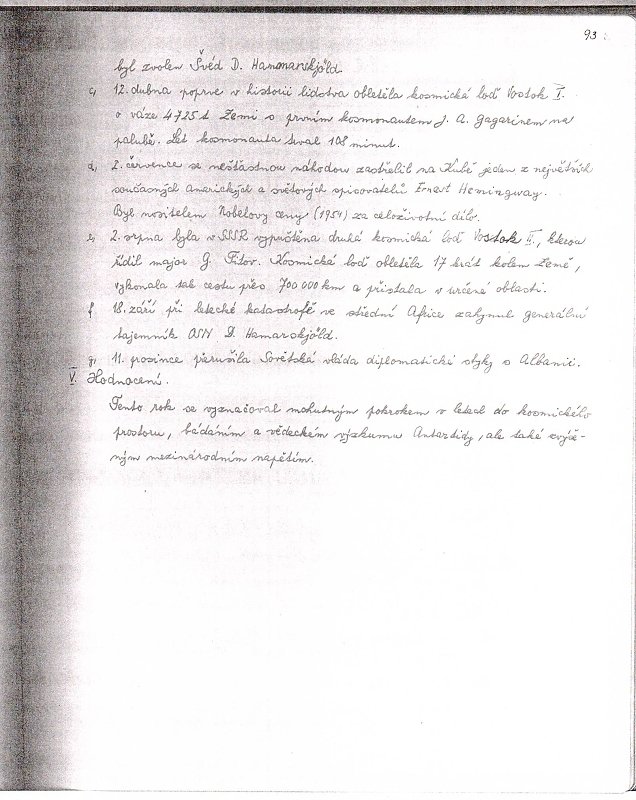 93
byl zvolen Švéd D. Hammarskjöld.
c, 12. dubna poprve v historii lidstva obletěla kosmická loď Vostok I.
o váze 4725 t Zemi s prvním kosmonautem J. A. Gagarinem na
palubě. Let kosmonauta trval 108 minut.
d, 2. července se nešťastnou náhodou zastřelil na Kubě jeden z největších
současných amerických a světových spisovatelů Ernest Hemingway.
Byl nositelem Nobelovy ceny (1954) za celoživotní dílo.
e, 2. srpna byla v SSSR vypuštěna druhá kosmická loď Vostok II., kterou
řídil major G. Titov. Kosmická loď obletěla 17 krát kolem Země,
vykonala tak cestu přes 700 000 km a přistála v určené oblasti.
f, 18. září při letecké katastrofě ve střední Africe zahynul generální
tajemník OSN D. Hamarskjöld.
g, 11. prosince přerušila Sovětská vláda diplomatické styky s Albanií.
V. Hodnocení.
Tento rok se vyznačoval mohutným pokrokem v letech do kosmického
prostoru, bádáním a vědeckém výzkumu Antarktidy, ale také zvýše-
ným mezinárodním napětím.